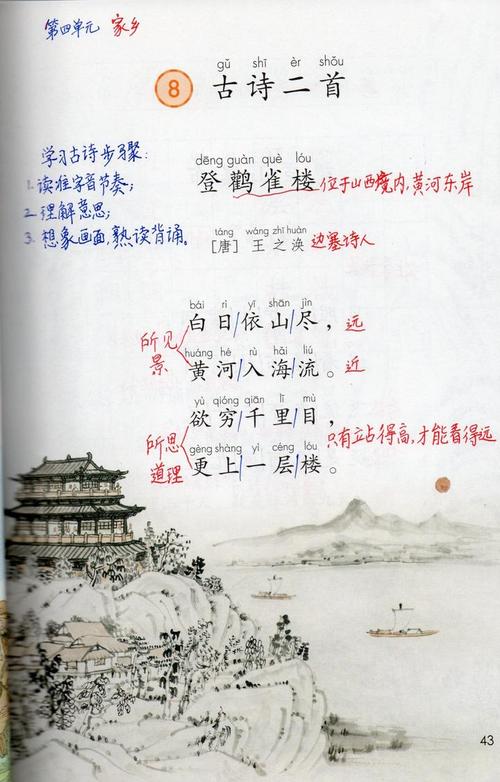 第四单元 家乡
gǔ shī èr shǒu
8 古诗二首
学习古诗步骤:
1.读准字音节奏;
2.理解意思;
3.想象画面,熟读背诵。
dēng guàn què lóu
登鹳雀楼 位于山西境内,黄河东岸
táng wáng zhī huàn
[唐] 王之涣 边塞诗人
bái rì yī shān jìn
白日/依山/尽, 远
所见
景
huáng hé rù hǎi liú
黄河/入海流。 近
yù qióng qiān lǐ mù
欲穷千里目,
只有站得高,才能看得远
所思
道理
gèng shàng yì céng lóu
更上/一层/楼。
43